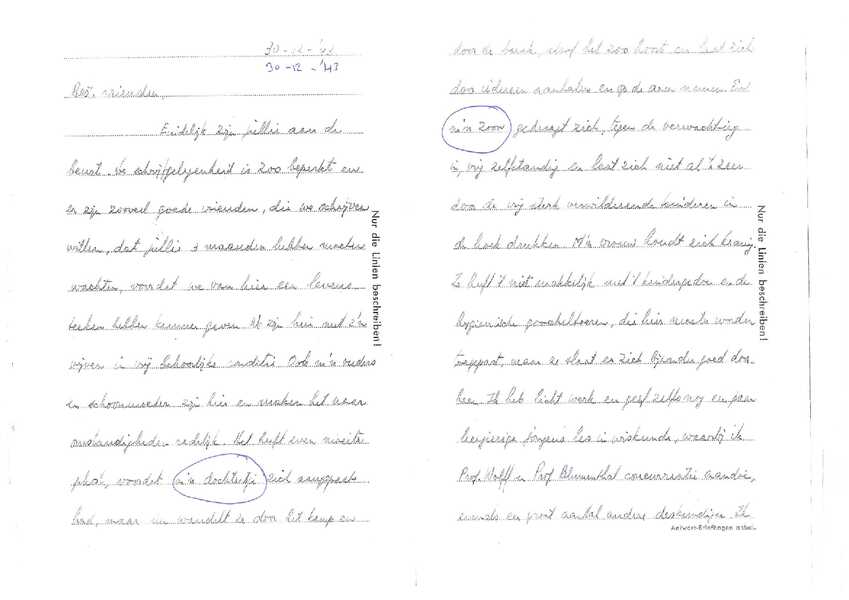 30-12-'43
30-12-'43
Beste vrienden,
Eindelijk zijn jullie aan de
beurt. De schrijfgelegenheid is zoo beperkt en
er zijn zooveel goede vrienden, die we schrijven
willen, dat jullie 3 maanden hebben moeten
wachten, voordat we van hier een levens
teeken hebben kunnen geven. We zijn hier met z'n
vijven in vrij behoorlijke conditie. Ook m'n ouders
en schoonmoeder zijn hier en maken het naar
omstandigheden redelijk. Het heeft even moeite
gekost, voordat m'n dochtertje zich aangepast
had, maar nu wandelt ze door het kamp en
Nur die Linien beschreiben!
door de barak, alsof het zoo hoort en laat zich
door iedereen aanhalen en op de arm nemen.
m'n zoon gedraagt zich, tegen de verwachting
in, vrij zelfstandig en laat zich niet al te zeer
door de vrij sterk verwilderende kinderen in
de hoek drukken. M'n vrouw houdt zich kranig.
Ze heeft 't niet makkelijk met 't kindergedoe en de
hygiënische goocheltoeren, die hier moeten worden
toegepast, maar ze slaat er zich bijzonder goed door
heen. Ik heb licht werk en geef zelfs nog een paar
leergierige jongens les in wiskunde, waarbij ik
Prof. Wolff en Prof Blumenthal concurrentie aandoe,
evenals een groot aantal andere deskundigen. Ik
Nur die Linien beschreiben!